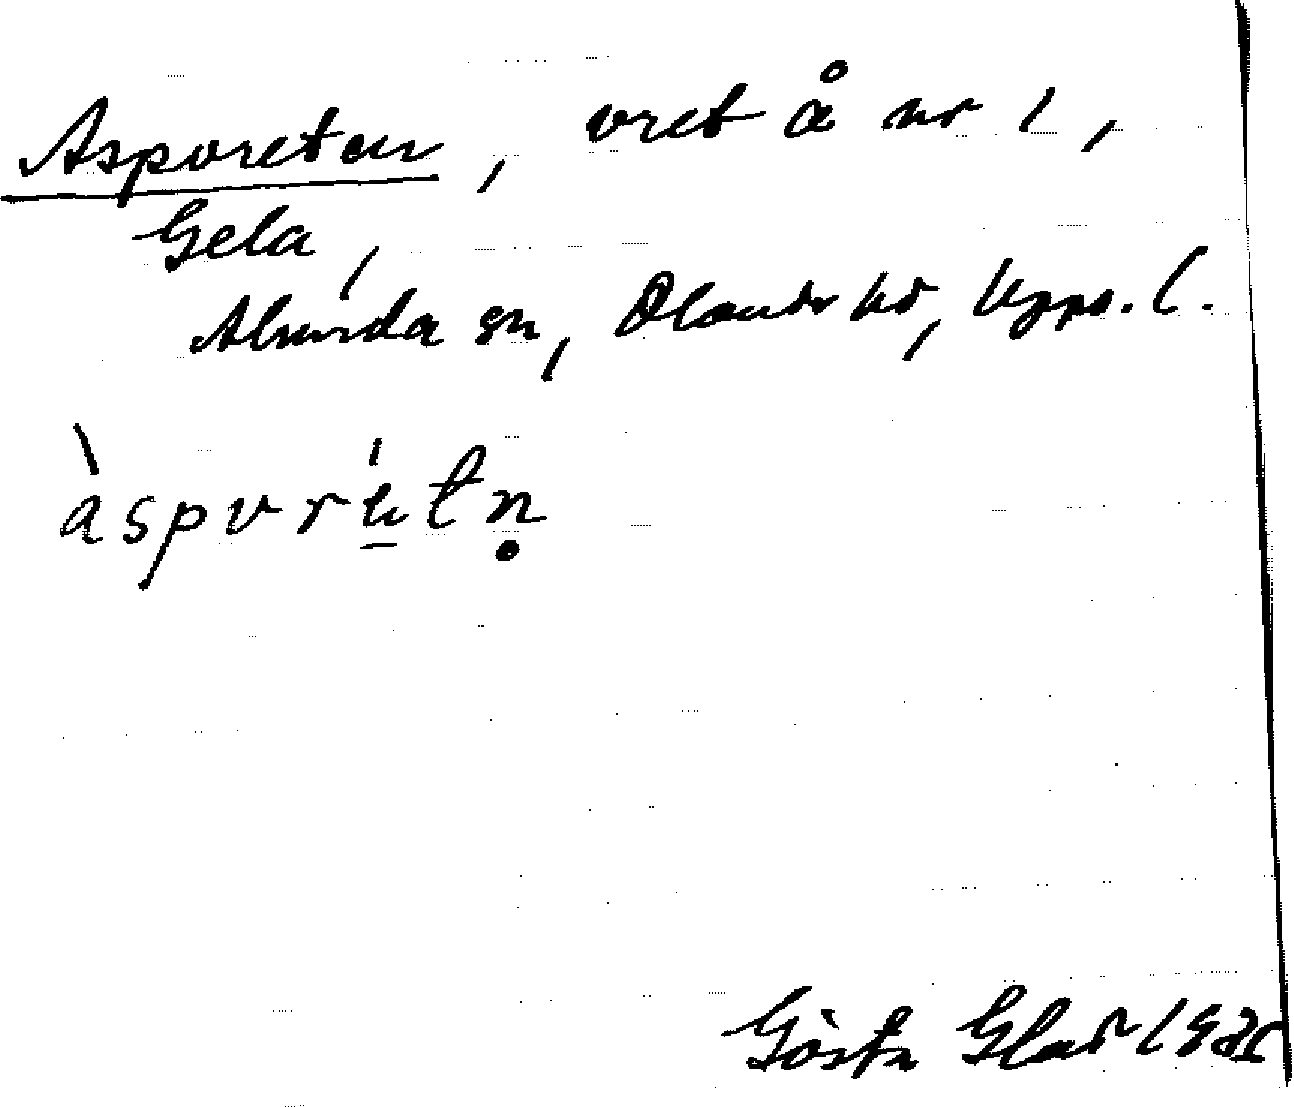 Aspvreten, vret å nr 1,
Gela,
Alunda sn, Olands hd, Upps. l.
àspvrétṇ
Gösta Glad